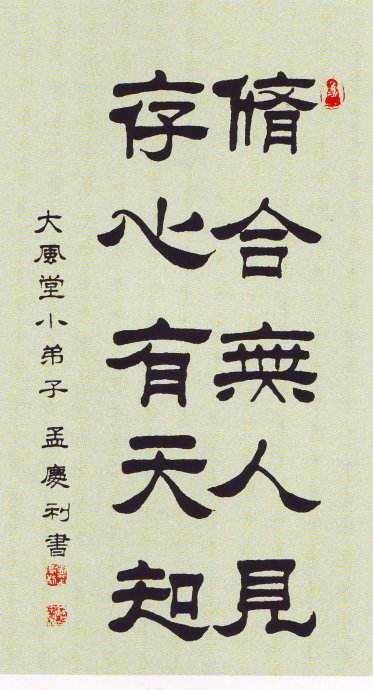 脩合無人見
存心有天知
大風堂小弟子 孟慶利書